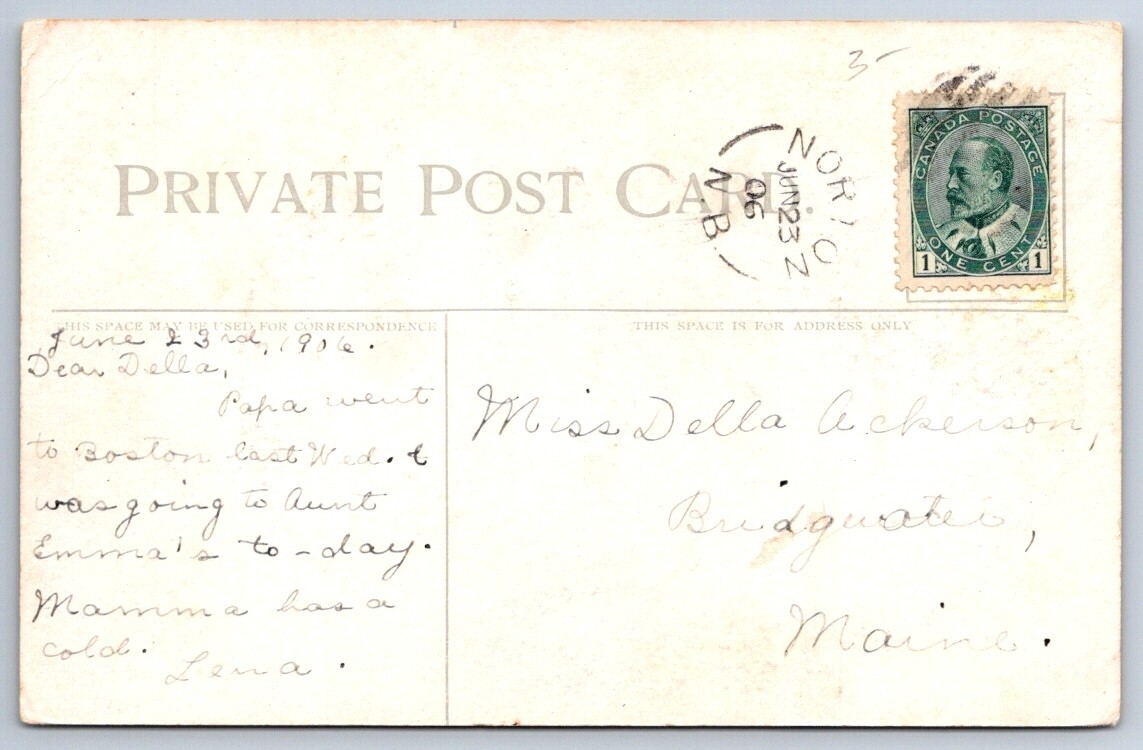 3-
CANADA POSTAGE
ONE CENT
1 1
NORTON
JUN 23
06
N.B.
PRIVATE POST CARD.
THIS SPACE MAY BE USED FOR CORRESPONDENCE
THIS SPACE IS FOR ADDRESS ONLY
June 23rd, 1906.
Dear Della,
Papa went
to Boston last Wed. &
was going to Aunt
Emma's to-day.
Mamma has a
cold.
Lena.
Miss Della Ackerson,
Bridgwater,
Maine.